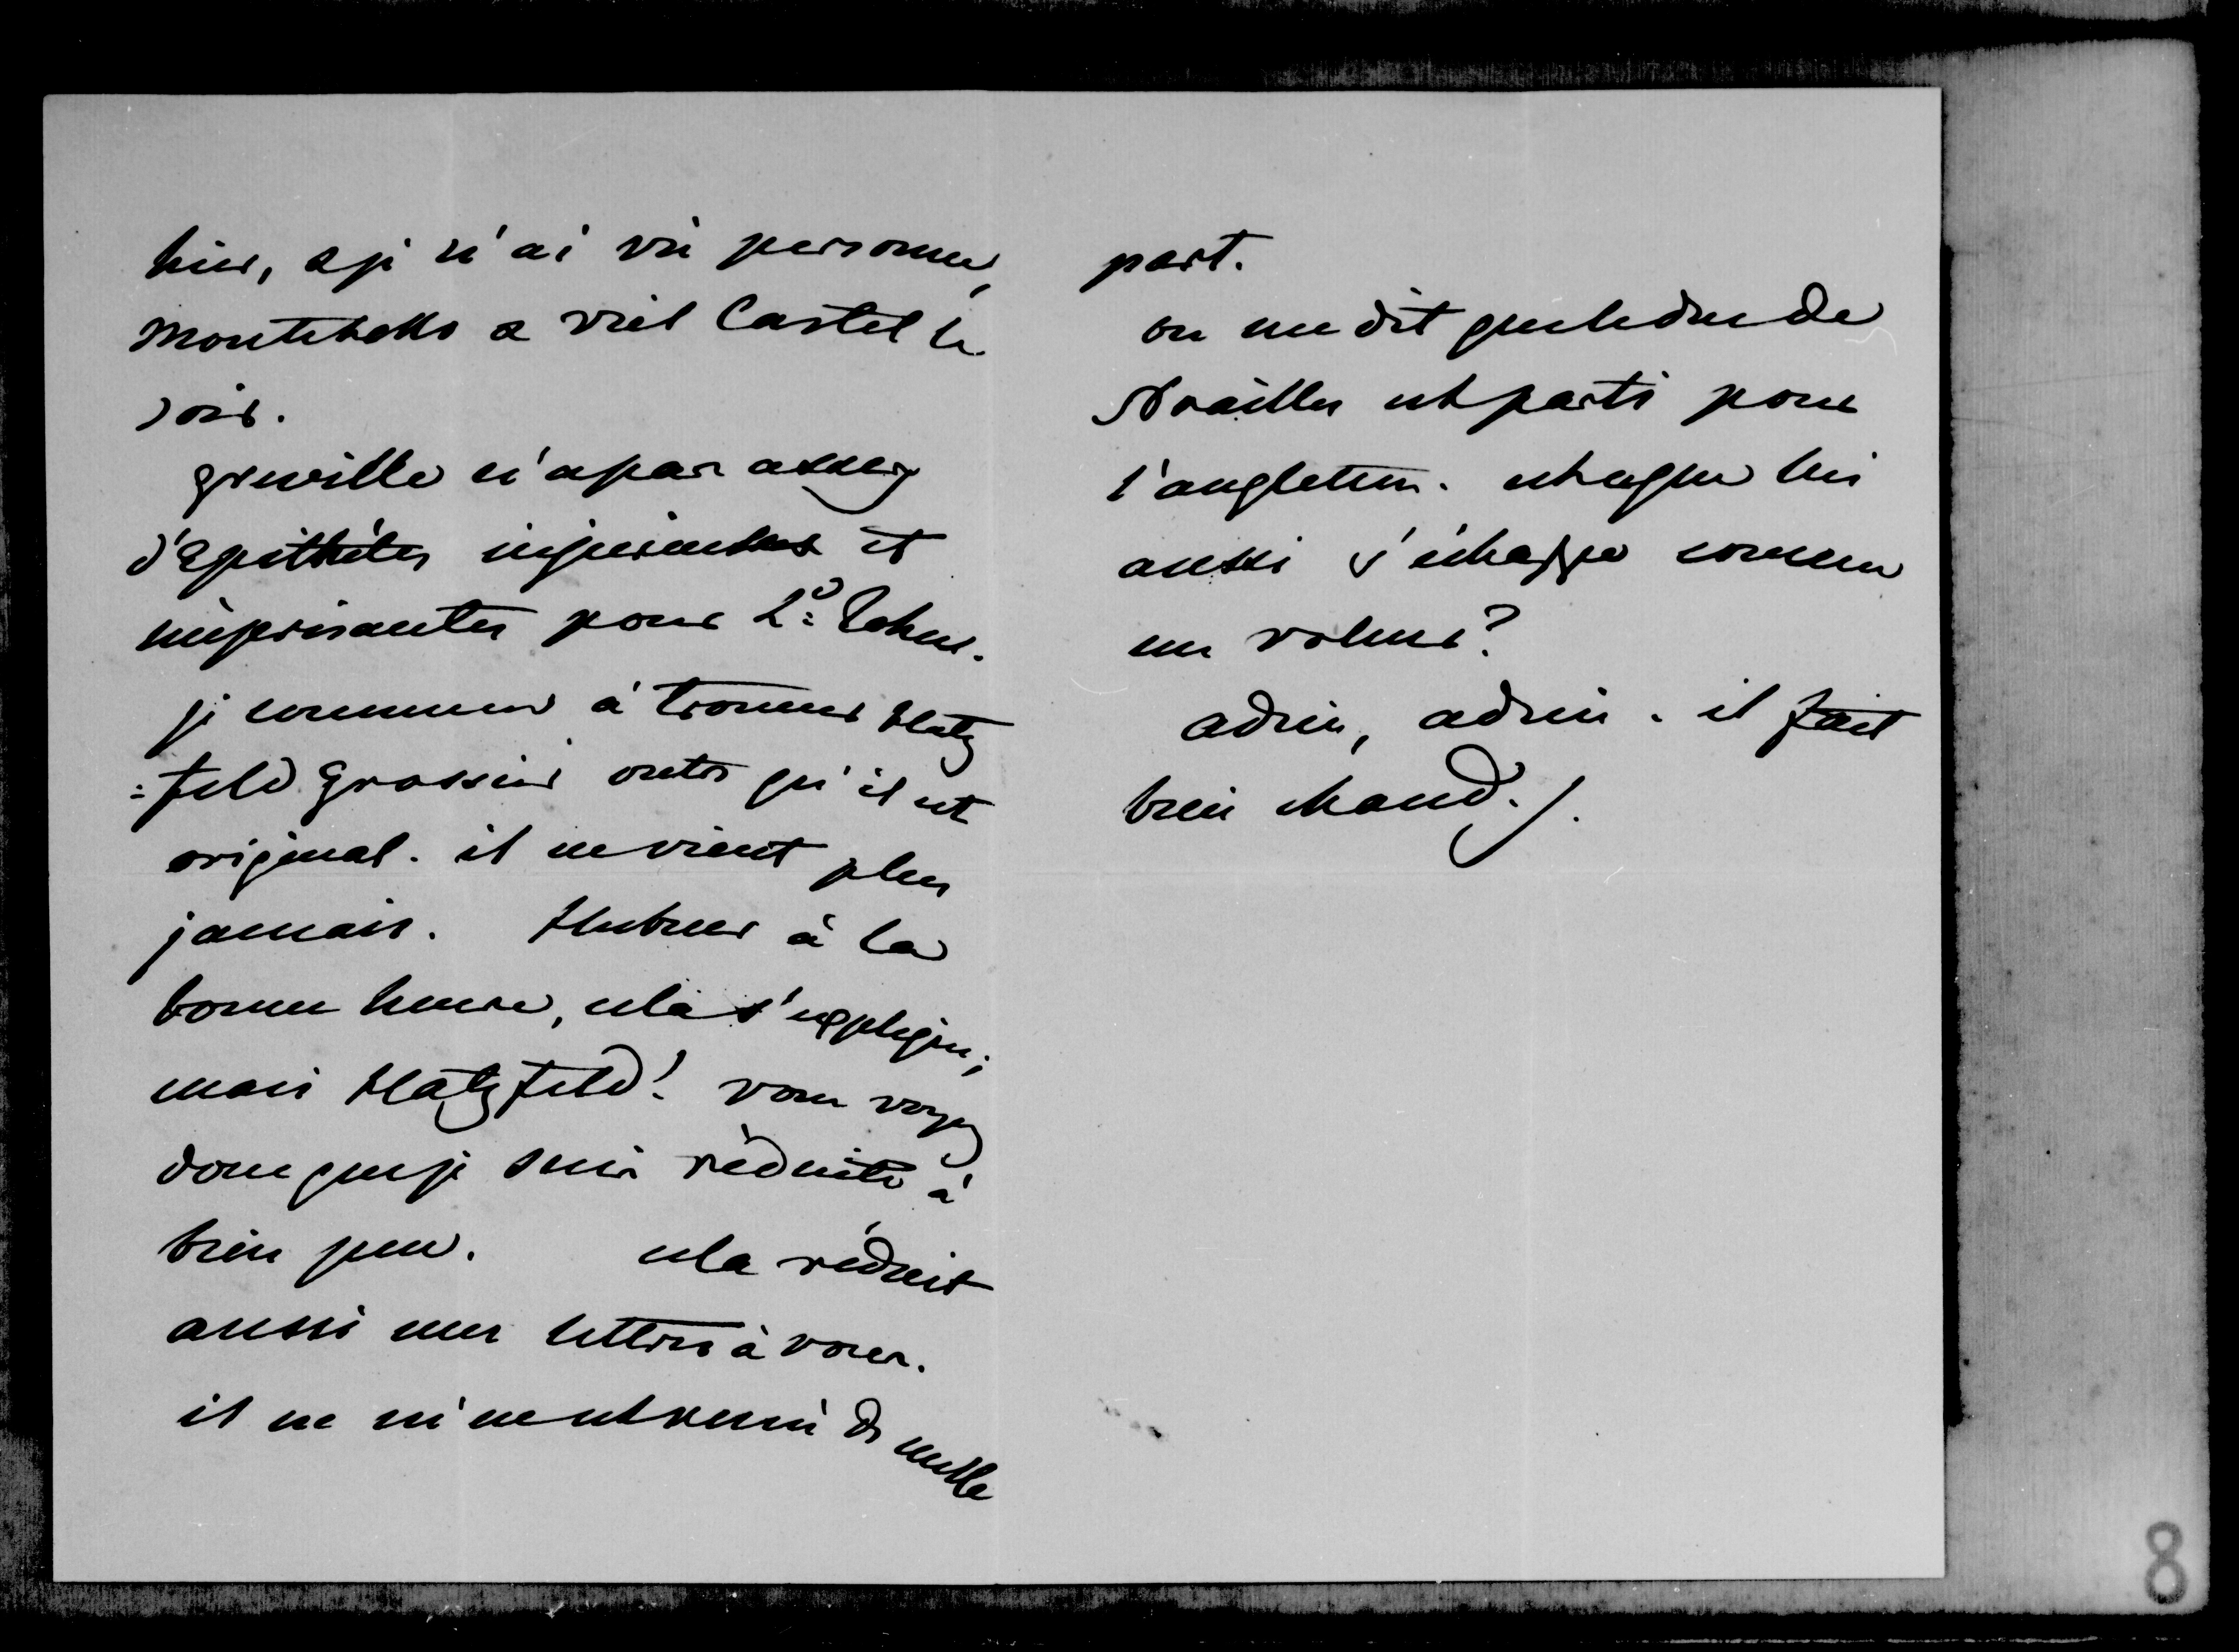 hier, & je n'ai vu personne,
Montebello & Viel Castel le
soir.
greville n'a pas assez
d'epithètes injurieuses et
méprisantes pour Ld John.
je commence à trouver Hatz
=feld grossier outre qu'il est
original. il ne vient plus
jamais. Hubner à la
bonne heure, cela s'explique;
mais Hatzfeld! vous voyez
donc que je suis réduite à
bien peu. cela réduit
aussi mes lettres à vous.
il ne m'en est venu de nulle
part.
on me dit que le duc de
Noailles est parti pour
l'angleterre. est-ce que lui
aussi s'échappe comme
un voleur?
adieu, adieu. il fait
bien chaud./.
8